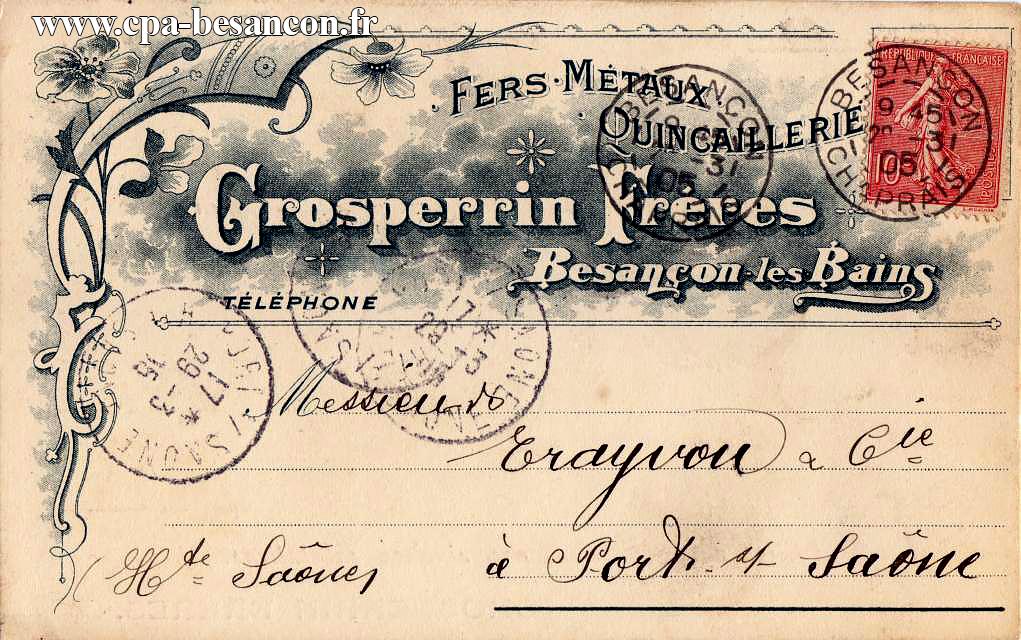 www.cpa-besancon.fr
FERS·MÉTAUX·
QUINCAILLERIE
Grosperrin Frères
Besançon-les Bains
TÉLÉPHONE
RÉPUBLIQUE FRANÇAISE
10
POSTES
BESANÇON
31
05
CHAPRAIS
BESANÇON
31
05
CHAPRAIS
SAÔNE
Messieurs
Trayvou & Cie
à Port s/ Saône
(Hte Saône)